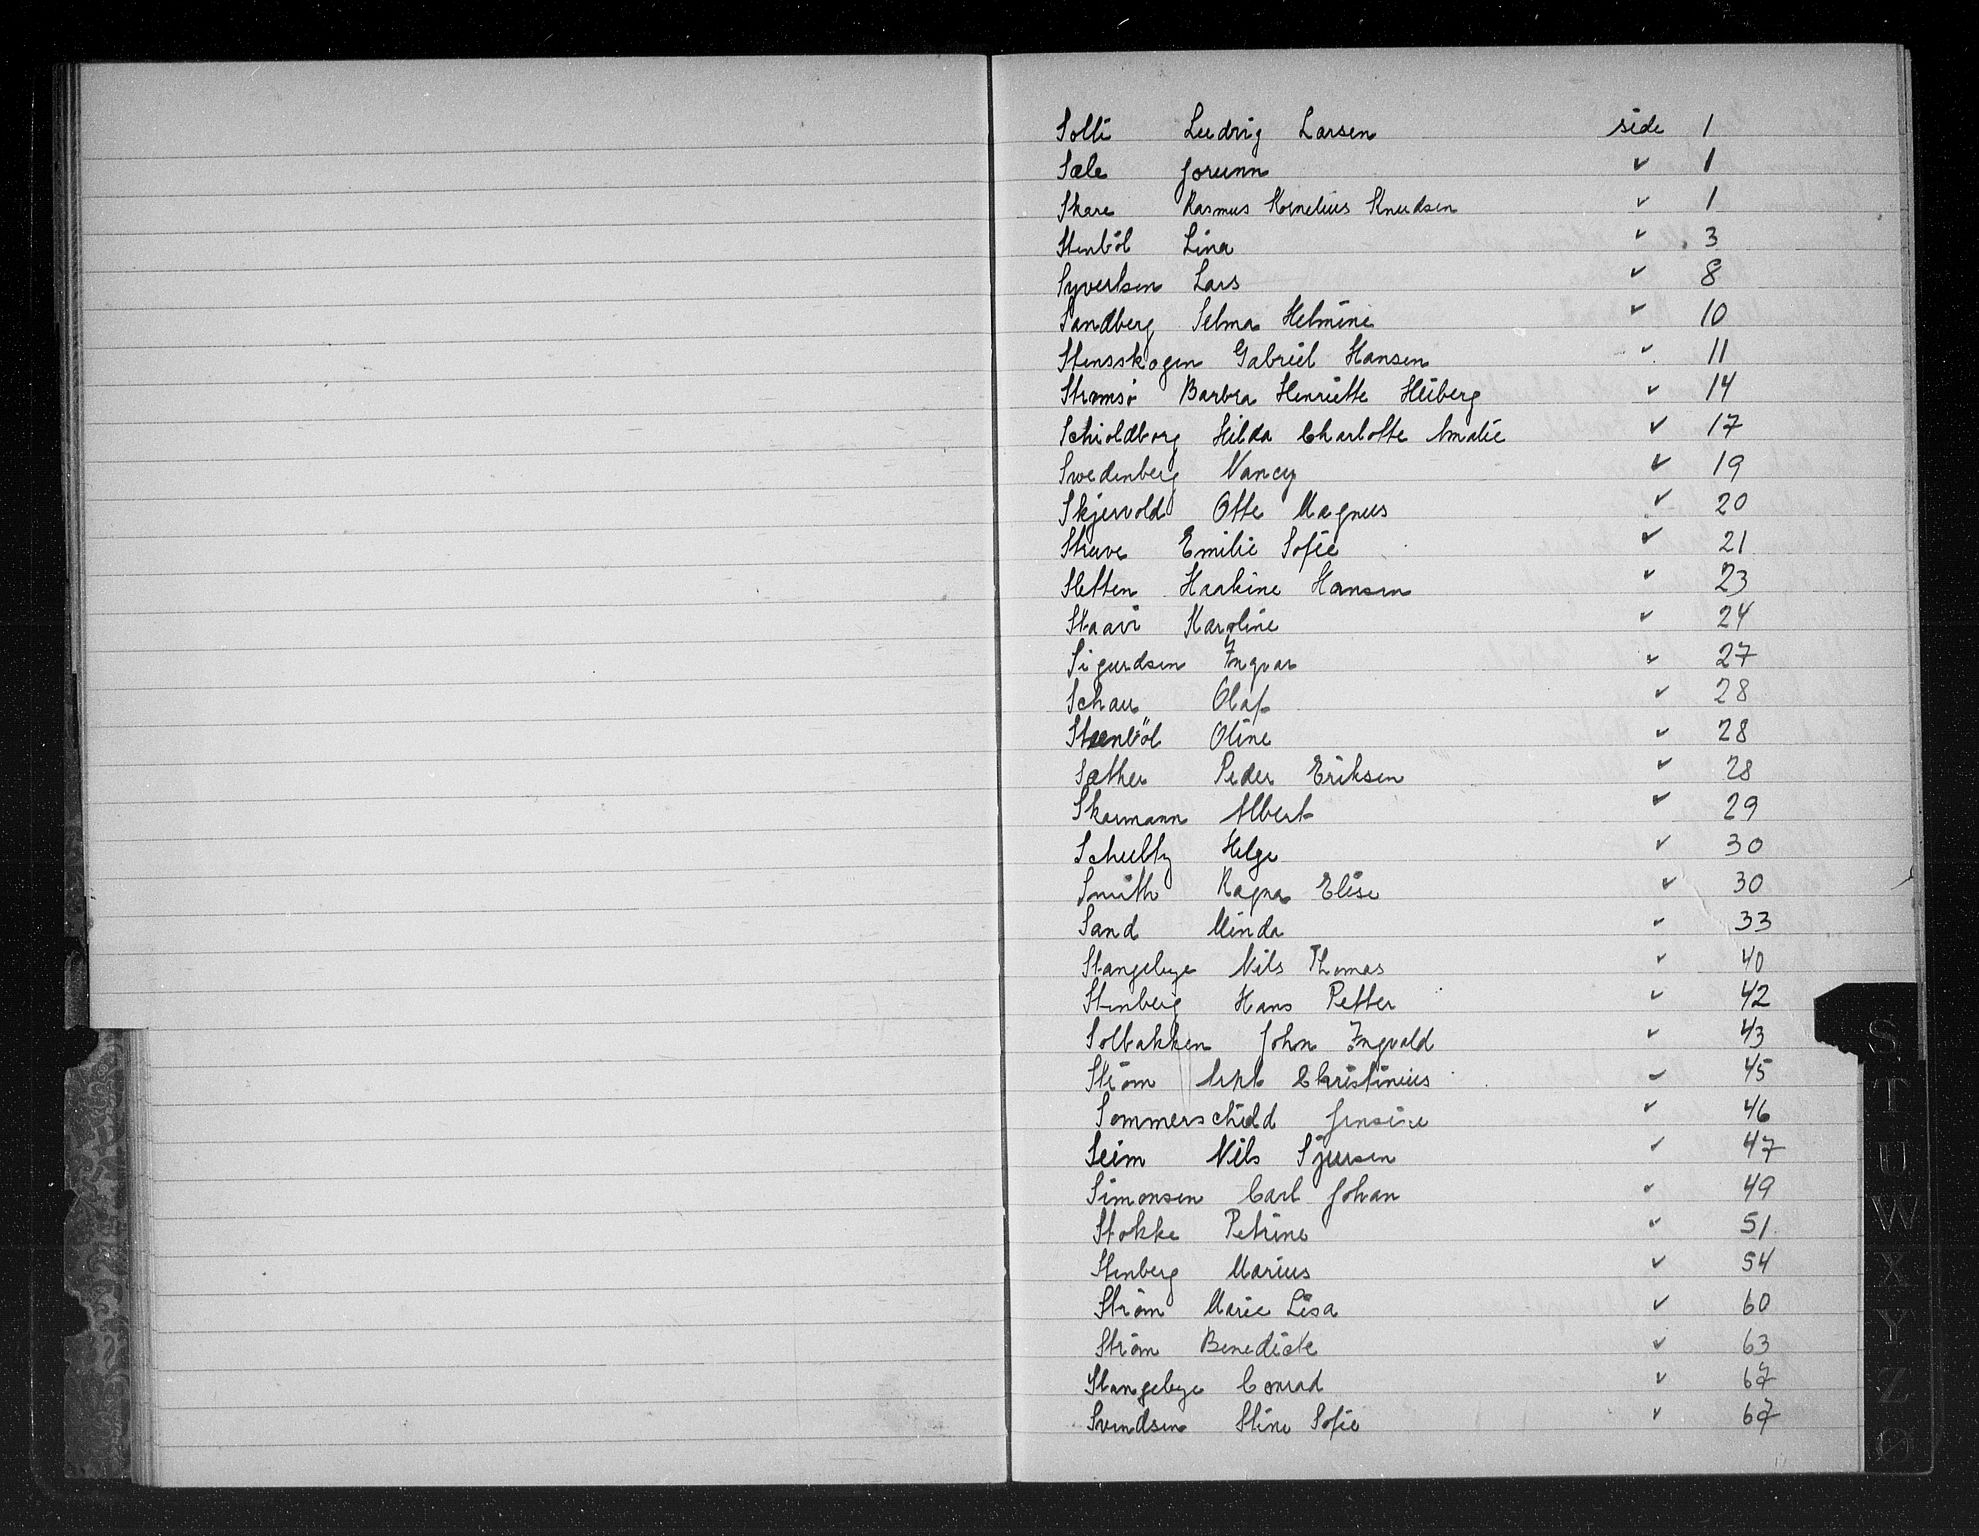 Solli Ludvig Larsen side 1
Sæle Jorunn " 1
Skare Rasmus Kornelius Knudsen " 1
Stenböl Lina " 3
Syvertsen Lars " 8
Sandberg Selma Helmine " 10
Stensskogen Gabriel Hansen " 11
Strømsø Barbra Henriette Heiberg " 14
Schioldborg Hilda Charlotte Amalie " 17
Swedenberg Nancy " 19
Skjervold Otte Magnus " 20
Struve Emilie Sofie " 21
Sletten Haakine Hansen " 23
Staavi Karoline " 24
Sigurdsen Ingvar " 27
Schau Olaf " 28
Steenböl Oline " 28
Sæther Peder Eriksen " 28
Skarmann Albert " 29
Schultz Helge " 30
Smith Ragna Elise " 30
Sand Minda " 33
Stangebye Nils Thomas " 40
Stenberg Hans Petter " 42
Solbakken John Ingvald " 43
Strøm Arnt Christinius " 45
Sommerschild Jensine " 46
Seim Nils Sjursen " 47
Simonsen Carl Johan " 49
Stokke Petrine " 51
Stenberg Marius " 54
Strøm Marie Lisa " 60
Strøm Benedicte " 63
Stangebye Conrad " 67
Svendsen Stine Sofie " 67
S
T
U
W
X
Y
Z
Ø